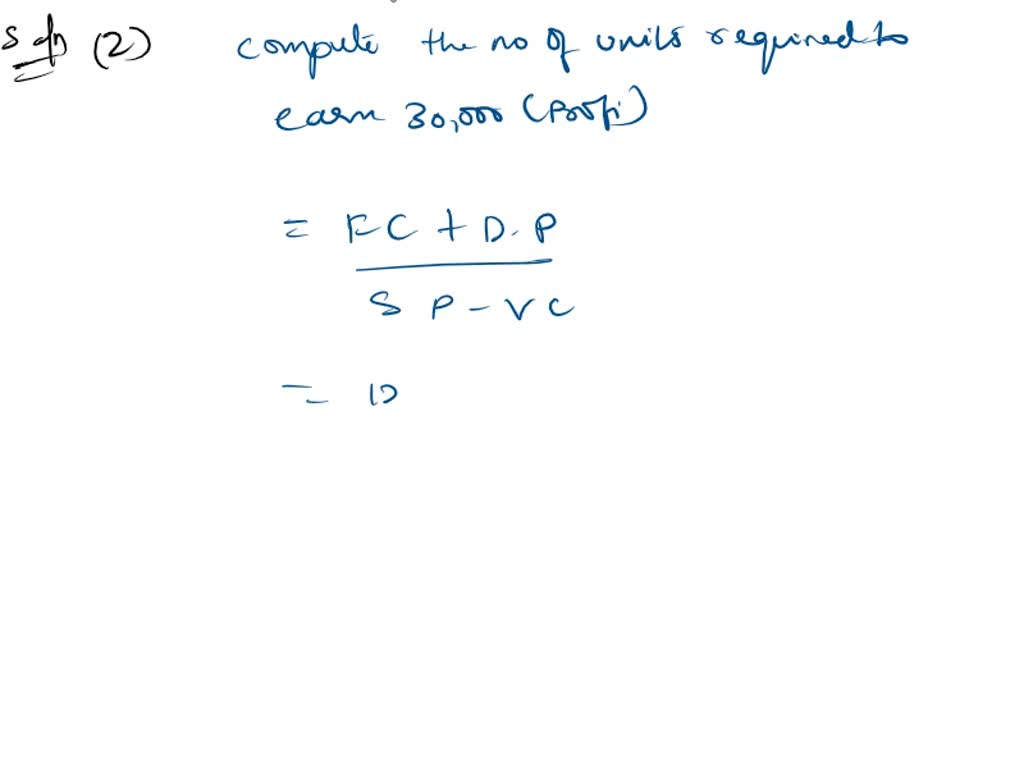 Soln (2) compute the no of units required to
earn 30,000 (Profi)
= FC + D.P
SP - VC
= 10